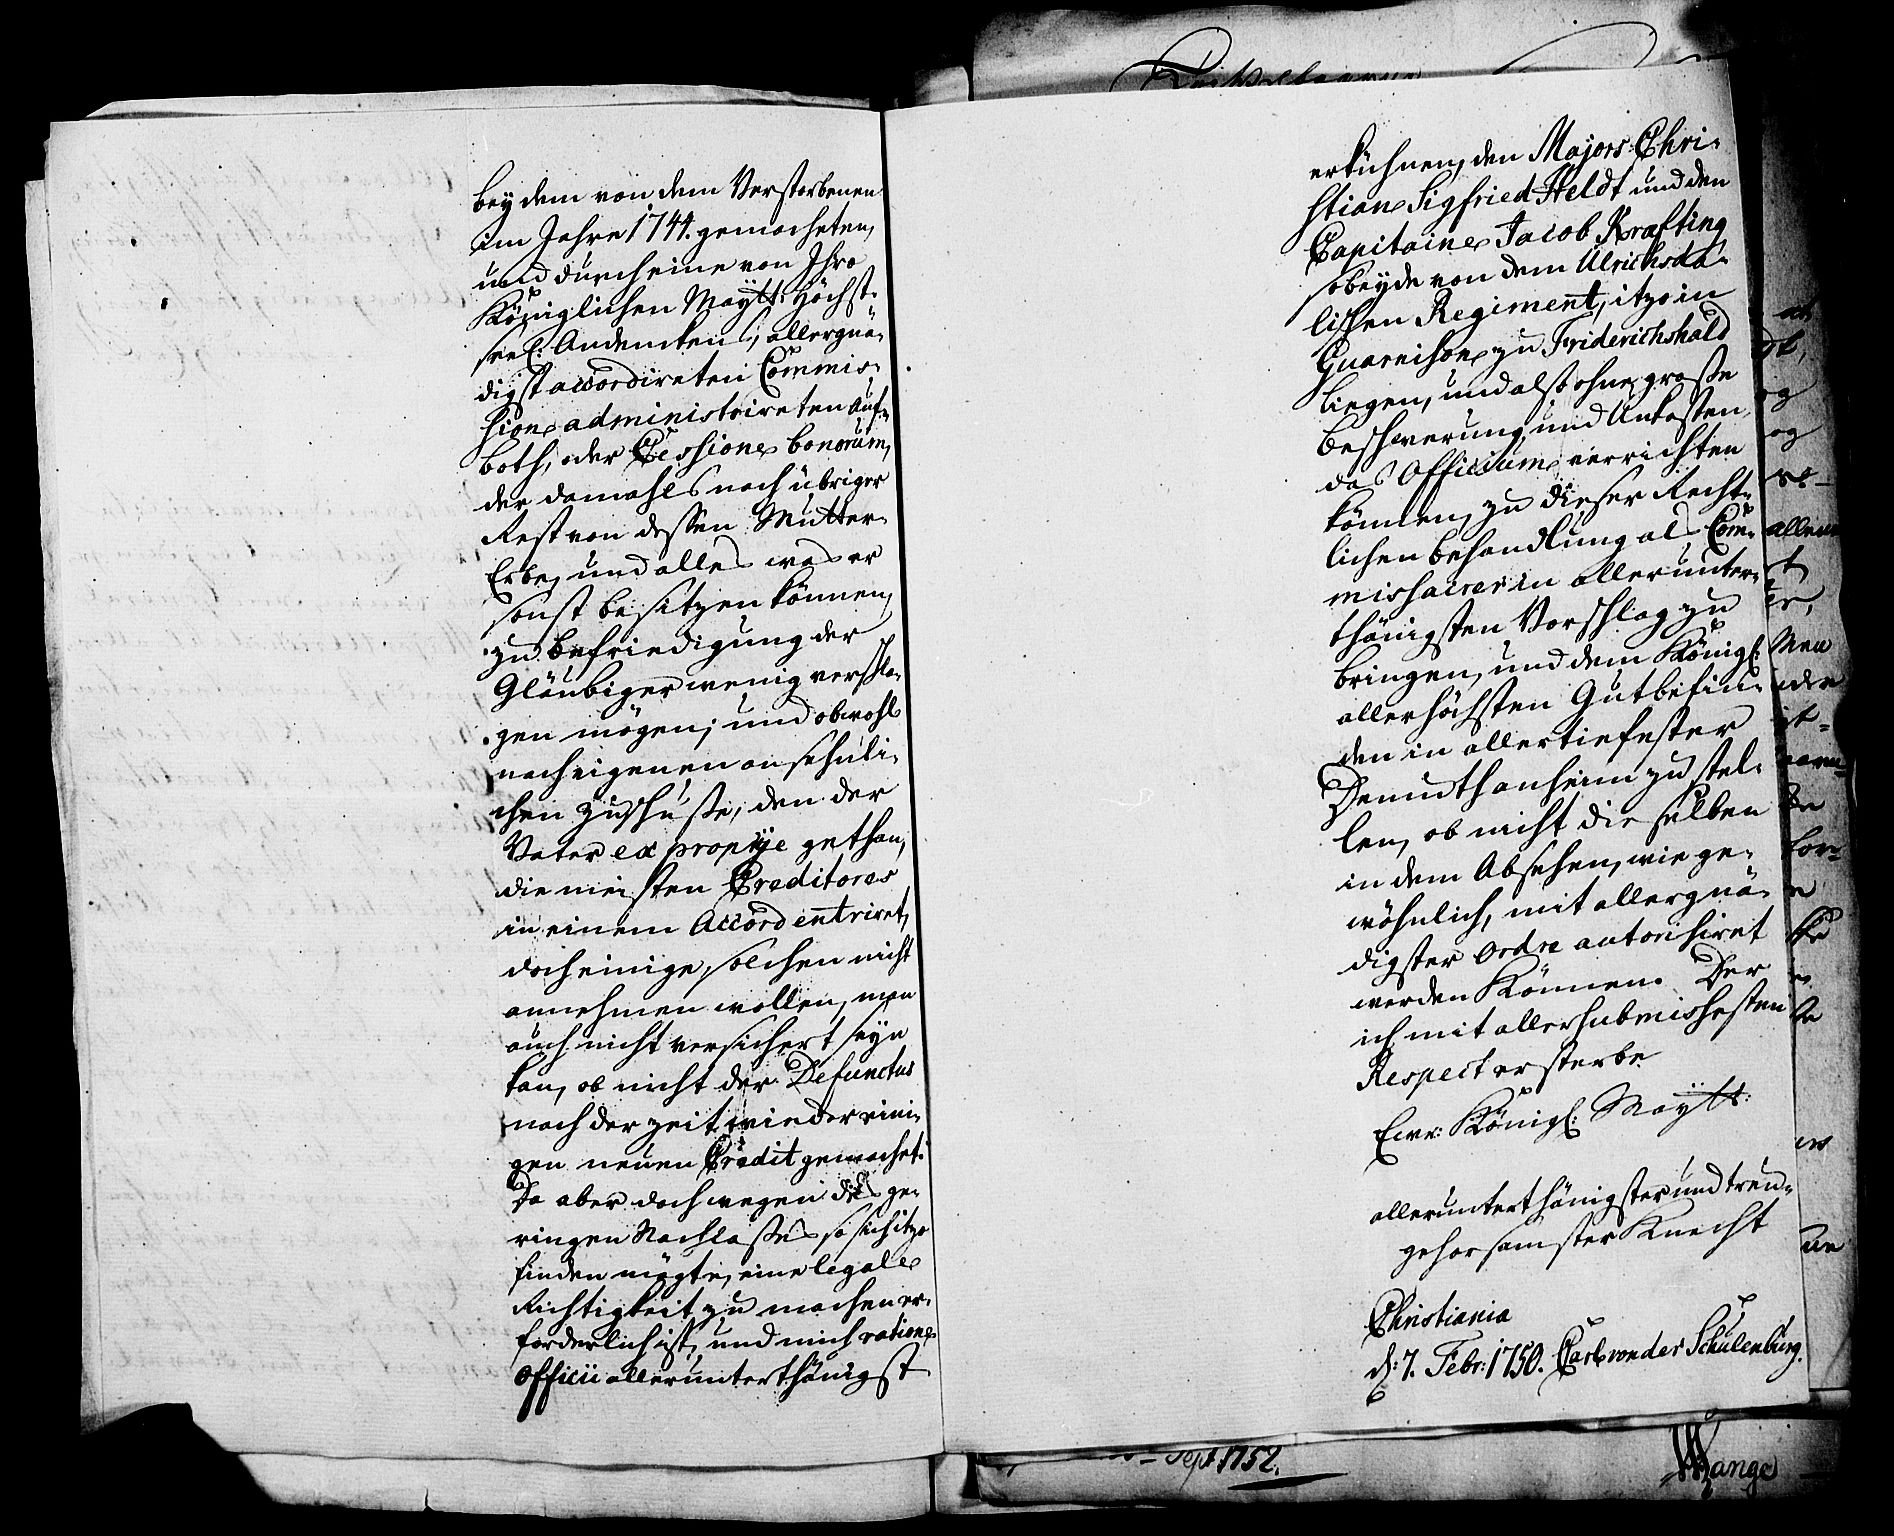 bey dem von dem Verstorbenen
im Jahre 1744. gemacheten,
und durch eine von Ihro
Königlichen Maÿtt: Höchst-
seel: Andenckens, allergnä-
digst accordireten Commis-
sion administrireten Auf-
both, oder Cessione bonorum,
der damahls noch übriger
Rest von dessen Mutter-
Erbe, und alles was er
sonst besitzen können,
zu befriedigung der
Gläubiger wenig verschla-
gen mögen; und obwohl
nach eigenen ansehnli-
chen Zuschuße, den der
Vater ex proprije gethan,
die meisten Creditores
in einem Accord entriret,
doch einige solchen nicht
annehmen wollen, man
auch nicht versichert seyn
kan, ob nicht der Defunctus
nach der zeit wieder eini-
gen neuen Credit gemachet.
Da aber doch wegen des ge-
ringen Nachlaßes so sich itzo
finden mögte, eine legale
Richtigkeit zu machen er-
forderlich ist, und mich ratione
officii allerunterthänigst
erkühnen, den Majors Chri-
stian Sigfried Heldt und den
Capitaine Jacob Kræfting
so beyde von dem Ulrichsda-
lischen Regiment, itzo in
Guarnison zu Friderichshald
liegen, und also ohne große
beschwerung und Unkosten
das Officium verrichten
können, zu dieser Recht-
lichen behandlung als Com-
missairer in allerunter-
thänigsten Vorschlag zu
bringen, und dem Königl:
allerhöchsten Gutbefin-
den in allertiefester
Demuth anheim zu stel-
len, ob nicht die selben
in dem Absehen, wie ge-
wöhnlich, mit allergnä-
digster Ordre autorisiret
werden Können. Der
ich mit allersubmissesten
Respect ersterbe
Ewr: Königl: Maÿtt:
allerunterthänigster und treu-
gehorsamster Knecht
Christiania
d: 7. Febr: 1750. Carl von der Schulenburg.
Sept 1752.
Mange